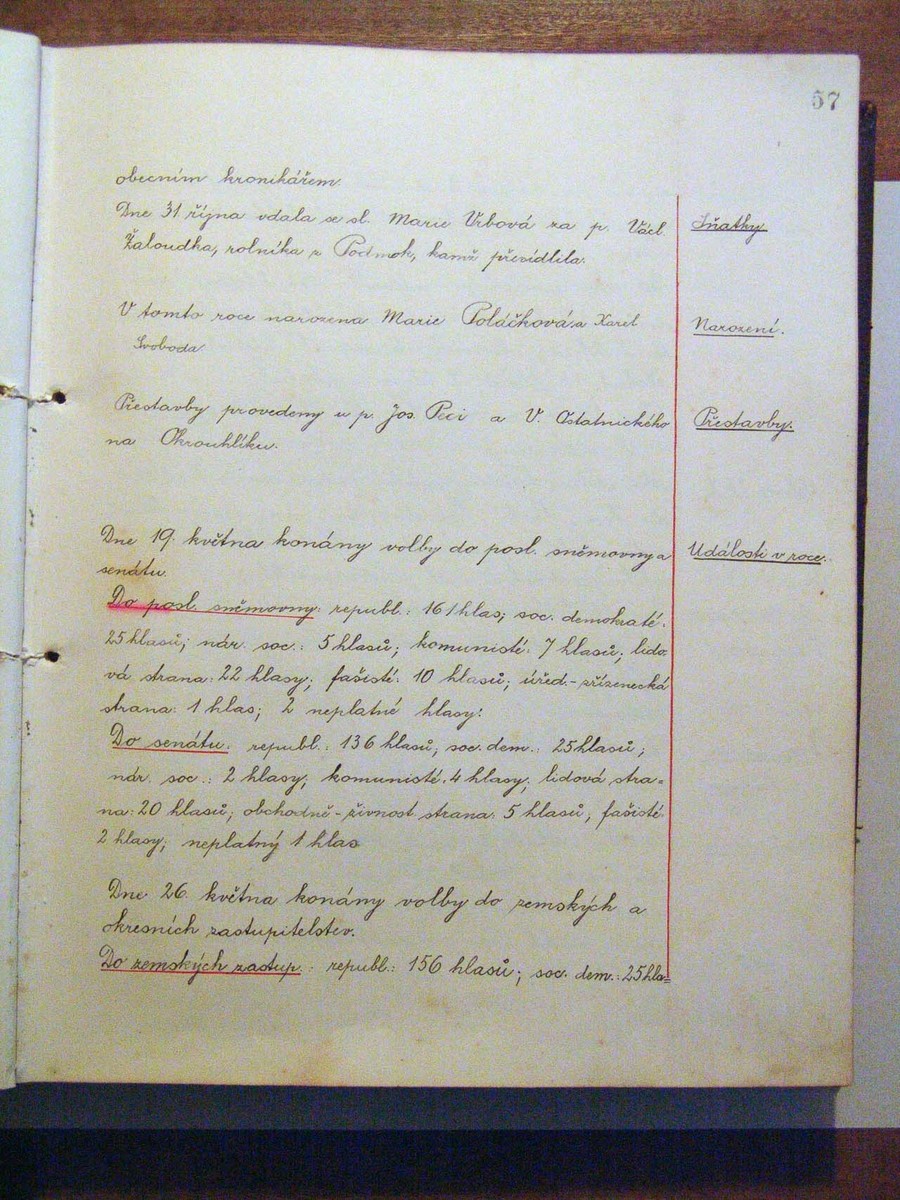 57
obecním kronikářem.
Dne 31 října vdala se sl. Marie Vrbová za p. Václ.
Sňatky.
Žaloudka, rolníka z Podmok, kamž přesídlila.
V tomto roce narozena Marie Poláčková a Karel
Narození.
Svoboda.
Přestavby provedeny u p. Jos. Peci a V. Ostatnického
Přestavby.
na Okrouhlíku.
Dne 19. května konány volby do posl. sněmovny a
Události v roce.
senátu.
Do posl. sněmovny: republ.: 161 hlas; soc. demokraté:
25 hlasů; nár. soc.: 5 hlasů; komunisté: 7 hlasů; lido
vá strana: 22 hlasy; fašisté: 10 hlasů; úřed.-zřízenecká
strana: 1 hlas; 2 neplatné hlasy.
Do senátu: republ.: 136 hlasů; soc. dem.: 25 hlasů;
nár. soc.: 2 hlasy; komunisté: 4 hlasy; lidová stra=
na: 20 hlasů; obchodně-živnost. strana: 5 hlasů; fašisté:
2 hlasy; neplatný 1 hlas
Dne 26. května konány volby do zemských a
okresních zastupitelstev.
Do zemských zastup.: republ.: 156 hlasů; soc. dem.: 25 hla=